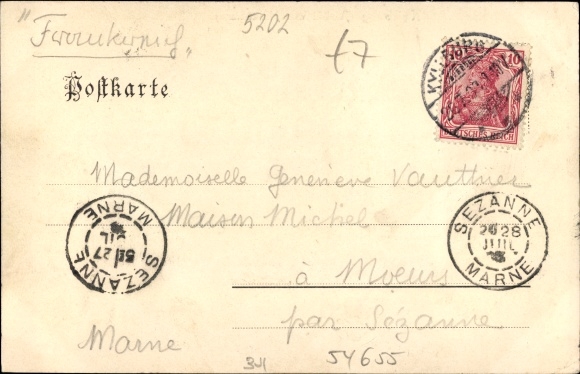 "Frankreich"
5202
£7
Postkarte
KYLLBURG
10
DEUTSCHES REICH
Mademoiselle Geneviève Vauthier
Maison Michel
à Moeurs
par Sézanne
Marne
SEZANNE
27
JUIL
MARNE
SEZANNE
28
JUIL
MARNE
54655